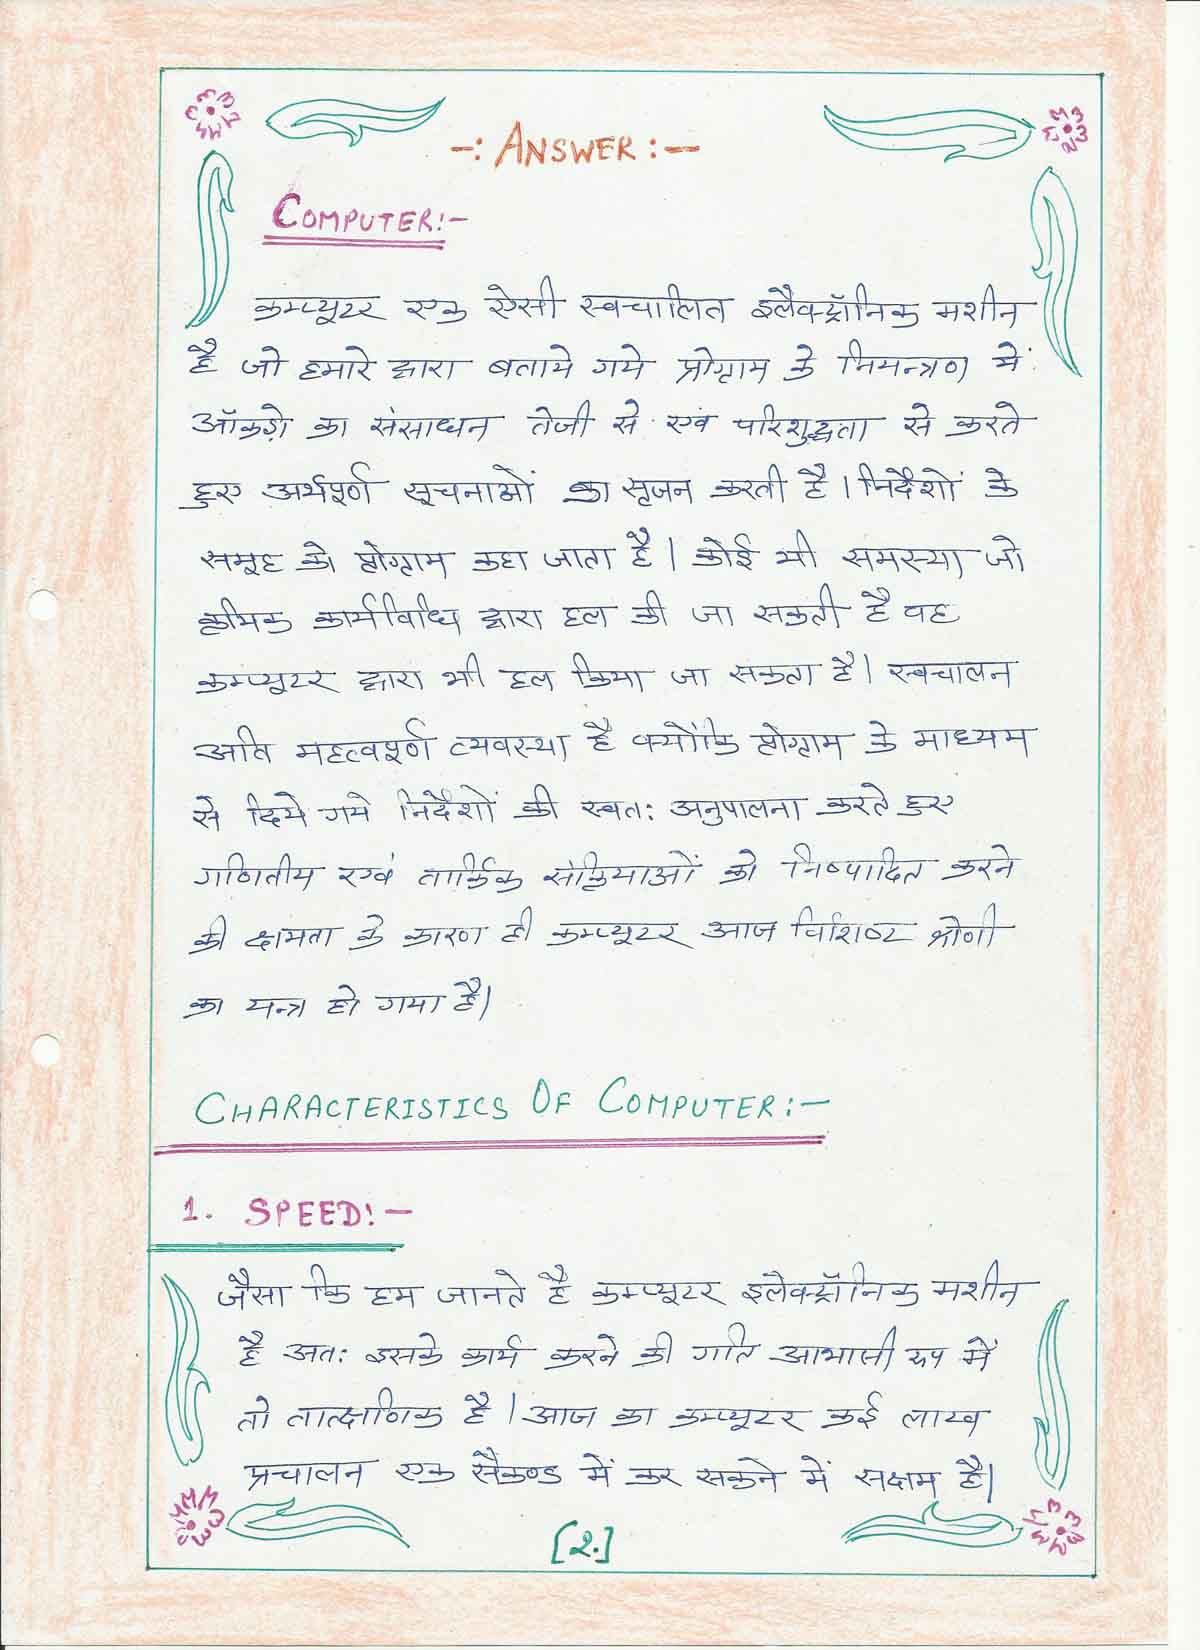 -: ANSWER :-
COMPUTER:-
कम्प्यूटर एक ऐसी स्वचालित इलैक्ट्रॉनिक मशीन
है जो हमारे द्वारा बताये गये प्रोग्राम के नियन्त्रण में
ऑकड़ो का संसाधन तेजी से एवं परिशुद्धता से करते
हुए अर्थपूर्ण सूचनाओं का सृजन करती है। निर्देशों के
समूह को प्रोग्राम कहा जाता है। कोई भी समस्या जो
क्रमिक कार्यविधि द्वारा हल की जा सकती है वह
कम्प्यूटर द्वारा भी हल किया जा सकता है। स्वचालन
अति महत्वपूर्ण व्यवस्था है क्योंकि प्रोग्राम के माध्यम
से दिये गये निर्देशों की स्वतः अनुपालना करते हुए
गणितीय एवं तार्किक संक्रियाओं को निष्पादित करने
की क्षमता के कारण ही कम्प्यूटर आज विशिष्ट श्रेणी
का यन्त्र हो गया है।
CHARACTERISTICS OF COMPUTER:-
1. SPEED:-
जैसा कि हम जानते है कम्प्यूटर इलैक्ट्रॉनिक मशीन
है अतः इसके कार्य करने की गति आभासी रूप में
तो तात्क्षणिक है। आज का कम्प्यूटर कई लाख
प्रचालन एक सैकण्ड में कर सकने में सक्षम है।
[2.]